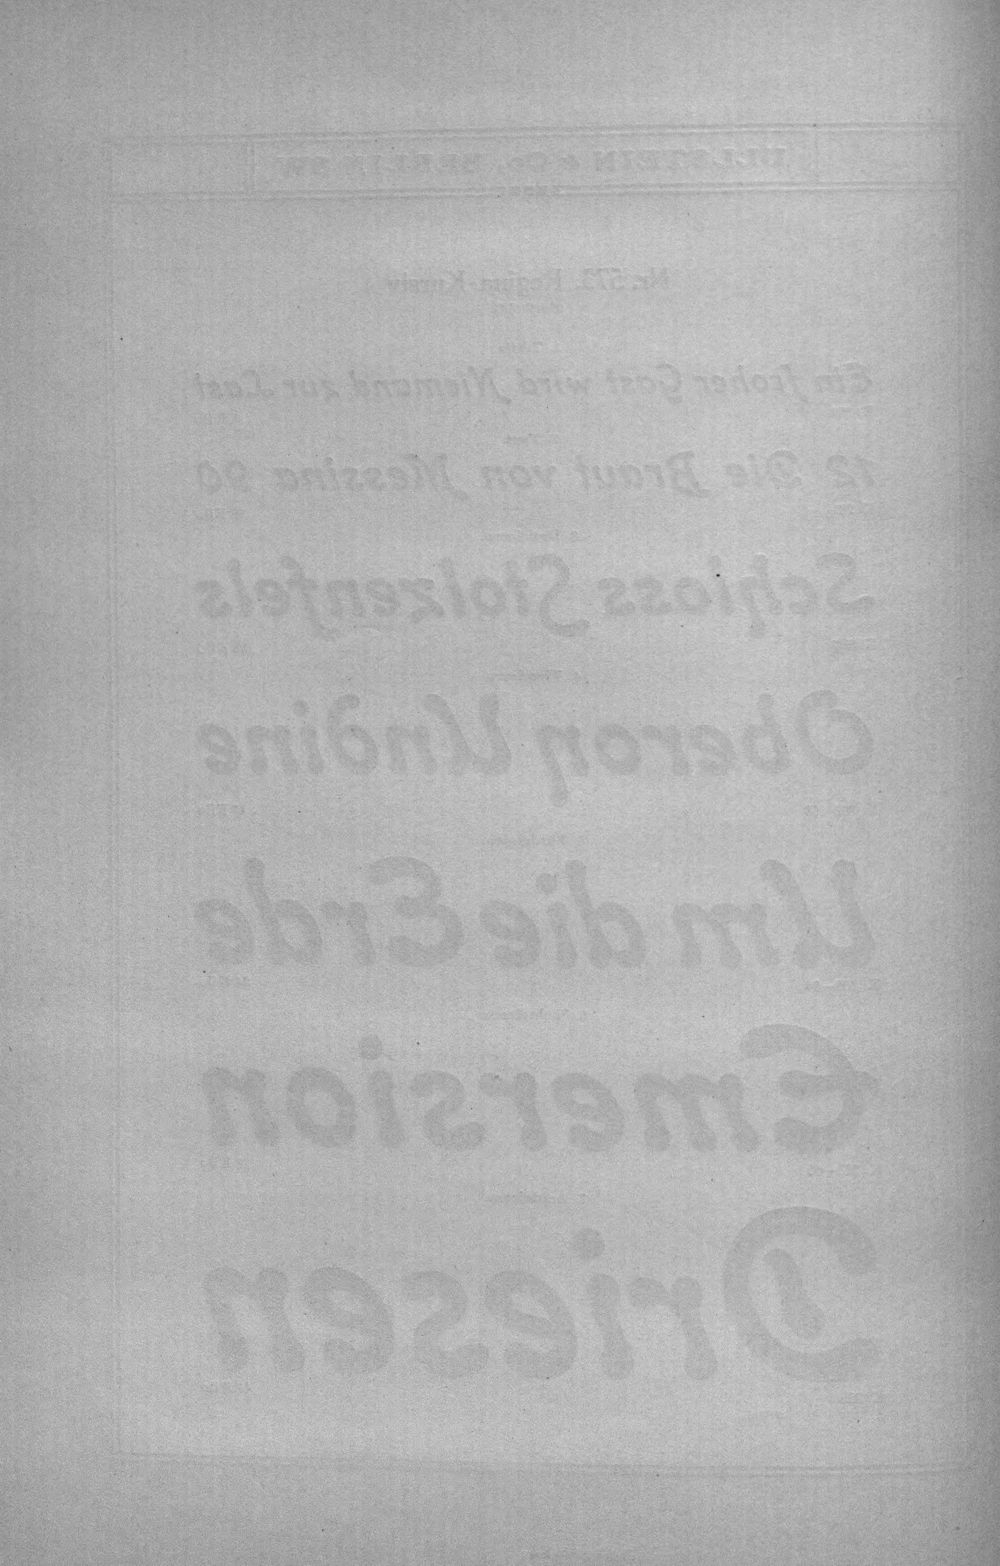 ULLSTEIN & Co, BERLIN SW
Nr. 573. Regina-Kursiv
Ein froher Gast wird Niemand zur Last
12 Die Braut von Messina 90
Schloss Stolzenfels
Oberon Undine
Um die Erde
Emersion
Driesen